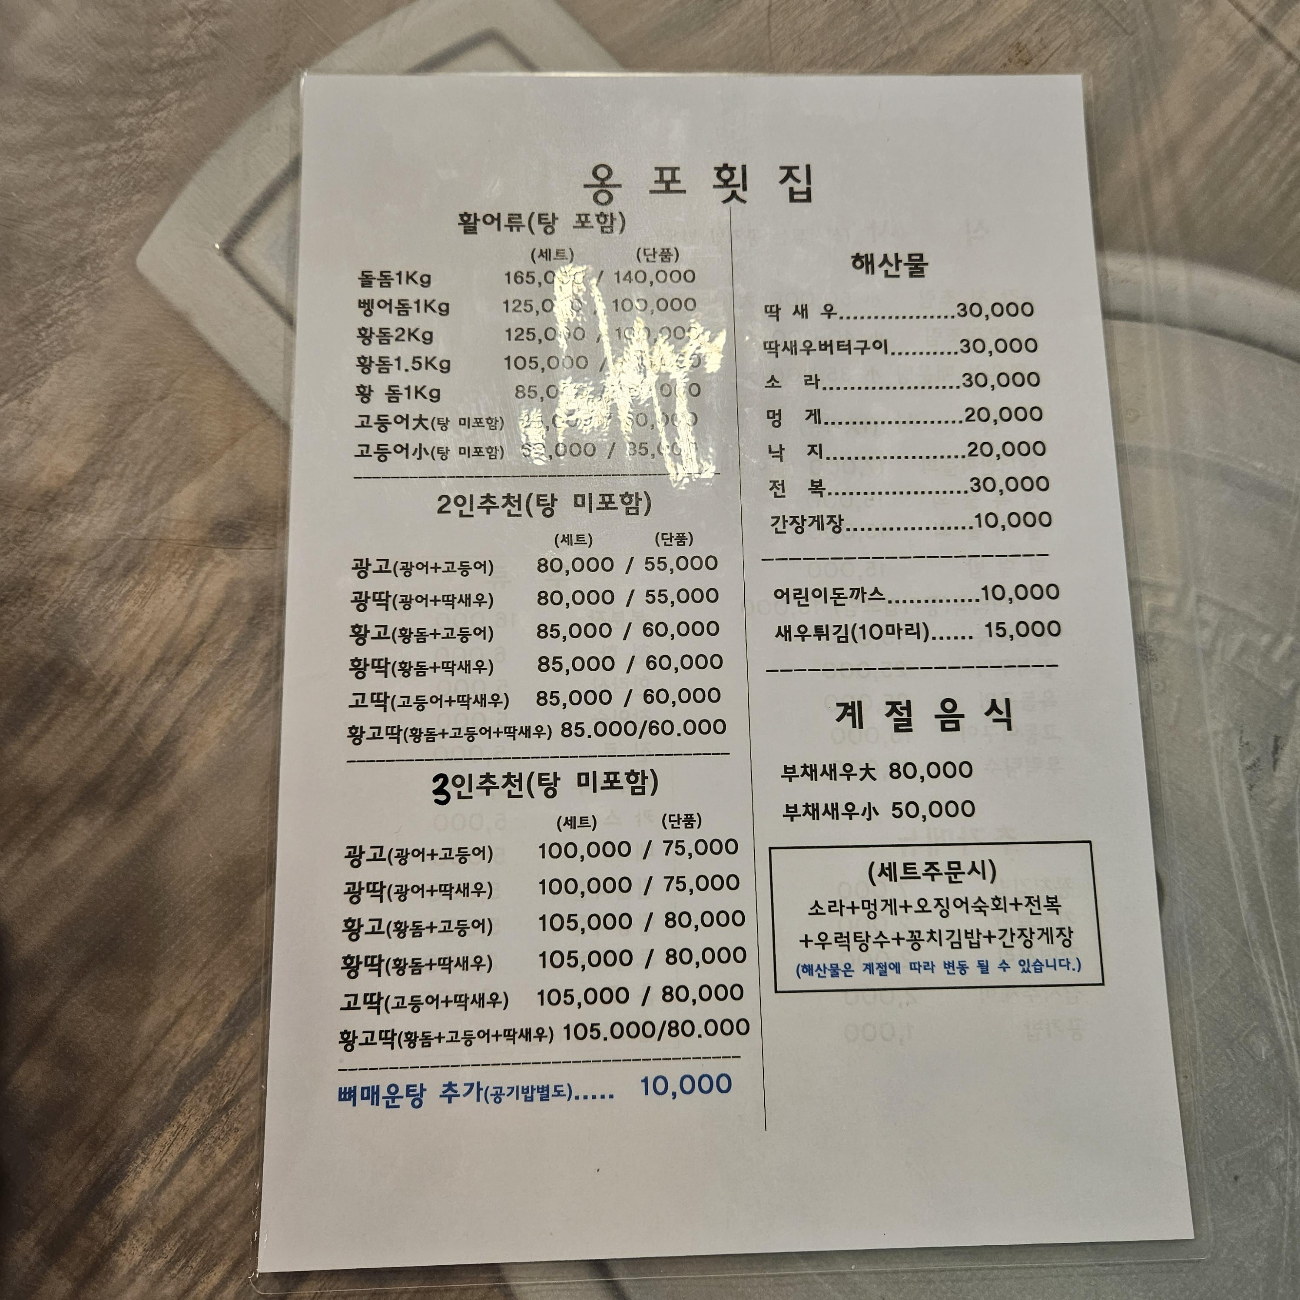 옹포횟집
활어류(탕 포함)
(세트) (단품)
돌돔1Kg 165,000 / 140,000
벵어돔1Kg 125,000 / 100,000
황돔2Kg 125,000 / 100,000
황돔1.5Kg 105,000 /
황 돔1Kg
고등어大(탕 미포함)
고등어小(탕 미포함) / 35,000
2인추천(탕 미포함)
(세트) (단품)
광고(광어+고등어) 80,000 / 55,000
광딱(광어+딱새우) 80,000 / 55,000
황고(황돔+고등어) 85,000 / 60,000
황딱(황돔+딱새우) 85,000 / 60,000
고딱(고등어+딱새우) 85,000 / 60,000
황고딱(황돔+고등어+딱새우) 85.000/60.000
3인추천(탕 미포함)
(세트) (단품)
광고(광어+고등어) 100,000 / 75,000
광딱(광어+딱새우) 100,000 / 75,000
황고(황돔+고등어) 105,000 / 80,000
황딱(황돔+딱새우) 105,000 / 80,000
고딱(고등어+딱새우) 105,000 / 80,000
황고딱(황돔+고등어+딱새우) 105.000/80.000
뼈매운탕 추가(공기밥별도)..... 10,000
해산물
딱 새 우.................30,000
딱새우버터구이..........30,000
소 라....................30,000
멍 게....................20,000
낙 지....................20,000
전 복....................30,000
간장게장..................10,000
어린이돈까스.............10,000
새우튀김(10마리)...... 15,000
계 절 음 식
부채새우大 80,000
부채새우小 50,000
(세트주문시)
소라+멍게+오징어숙회+전복
+우럭탕수+꽁치김밥+간장게장
(해산물은 계절에 따라 변동 될 수 있습니다.)